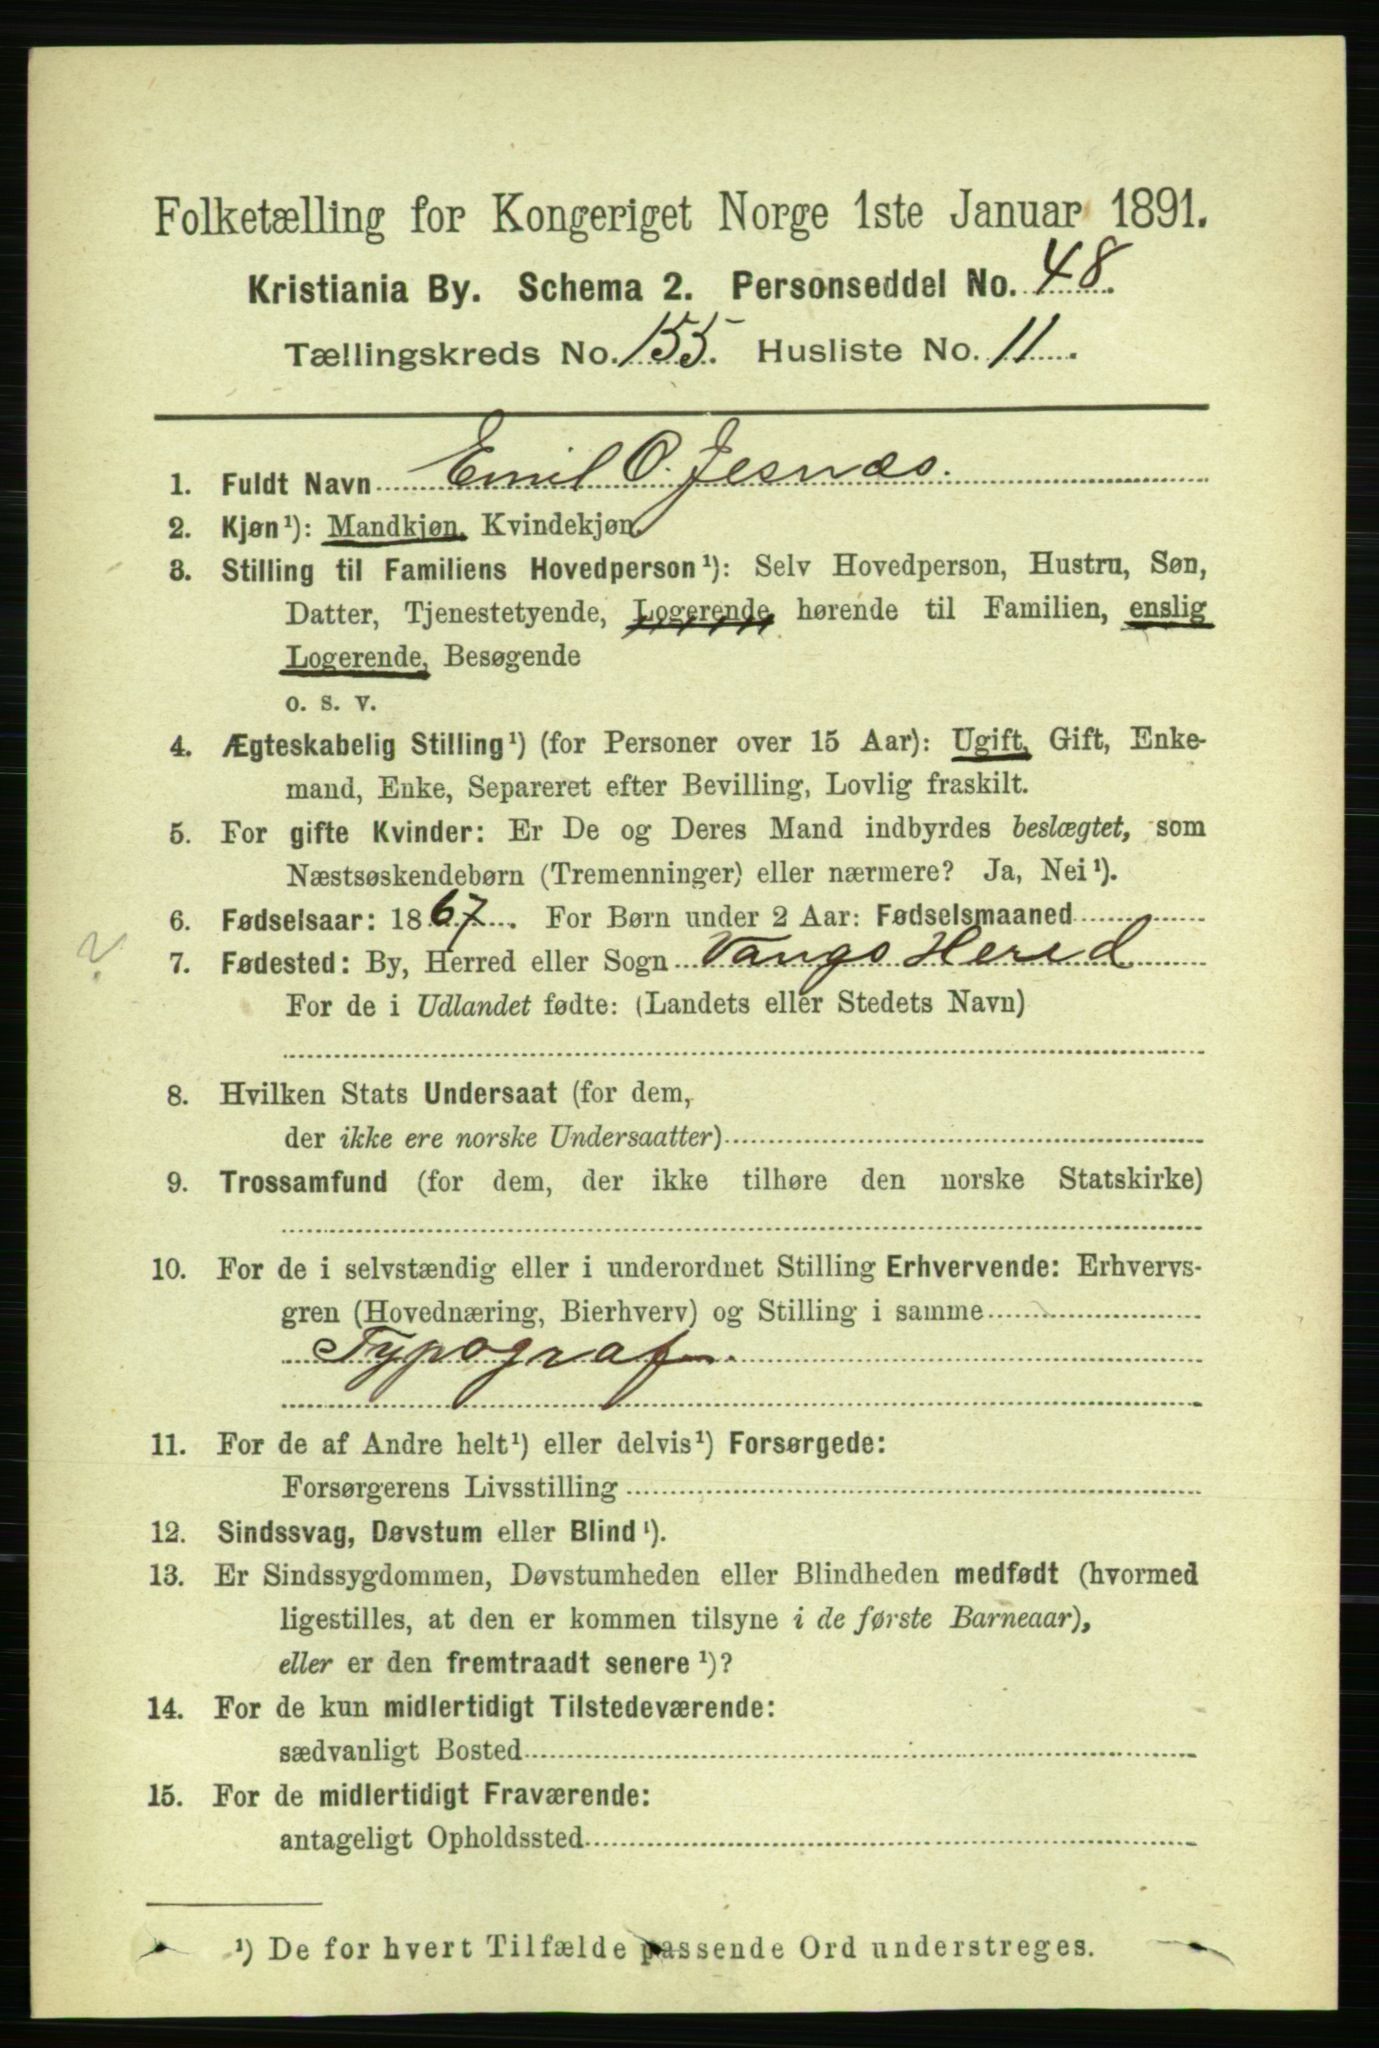 Folketælling for Kongeriget Norge 1ste Januar 1891.
Kristiania By. Schema 2. Personseddel No. 48.
Tællingskreds No. 155. Husliste No. 11.
1. Fuldt Navn Emil O. Jesnæs.
2. Kjøn¹): Mandkjøn, Kvindekjøn.
3. Stilling til Familiens Hovedperson¹): Selv Hovedperson, Hustru, Søn,
Datter, Tjenestetyende, Logerende, hørende til Familien, enslig
Logerende, Besøgende
o. s. v.
4. Ægteskabelig Stilling¹) (for Personer over 15 Aar): Ugift, Gift, Enke-
mand, Enke, Separeret efter Bevilling, Lovlig fraskilt.
5. For gifte Kvinder: Er De og Deres Mand indbyrdes beslægtet, som
Næstsøskendebørn (Tremenninger) eller nærmere? Ja, Nei¹).
6. Fødselsaar: 1867. For Børn under 2 Aar: Fødselsmaaned
?
7. Fødested: By, Herred eller Sogn Vangs Hered
For de i Udlandet fødte: (Landets eller Stedets Navn)
8. Hvilken Stats Undersaat (for dem,
der ikke ere norske Undersaatter)
9. Trossamfund (for dem, der ikke tilhøre den norske Statskirke)
10. For de i selvstændig eller i underordnet Stilling Erhvervende: Erhvervs-
gren (Hovednæring, Bierhverv) og Stilling i samme
Typograf
11. For de af Andre helt¹) eller delvis¹) Forsørgede:
Forsørgerens Livsstilling
12. Sindssvag, Døvstum eller Blind¹).
13. Er Sindssygdommen, Døvstumheden eller Blindheden medfødt (hvormed
ligestilles, at den er kommen tilsyne i de første Barneaar),
eller er den fremtraadt senere¹)?
14. For de kun midlertidigt Tilstedeværende:
sædvanligt Bosted
15. For de midlertidigt Fraværende:
antageligt Opholdssted
¹) De for hvert Tilfælde passende Ord understreges.